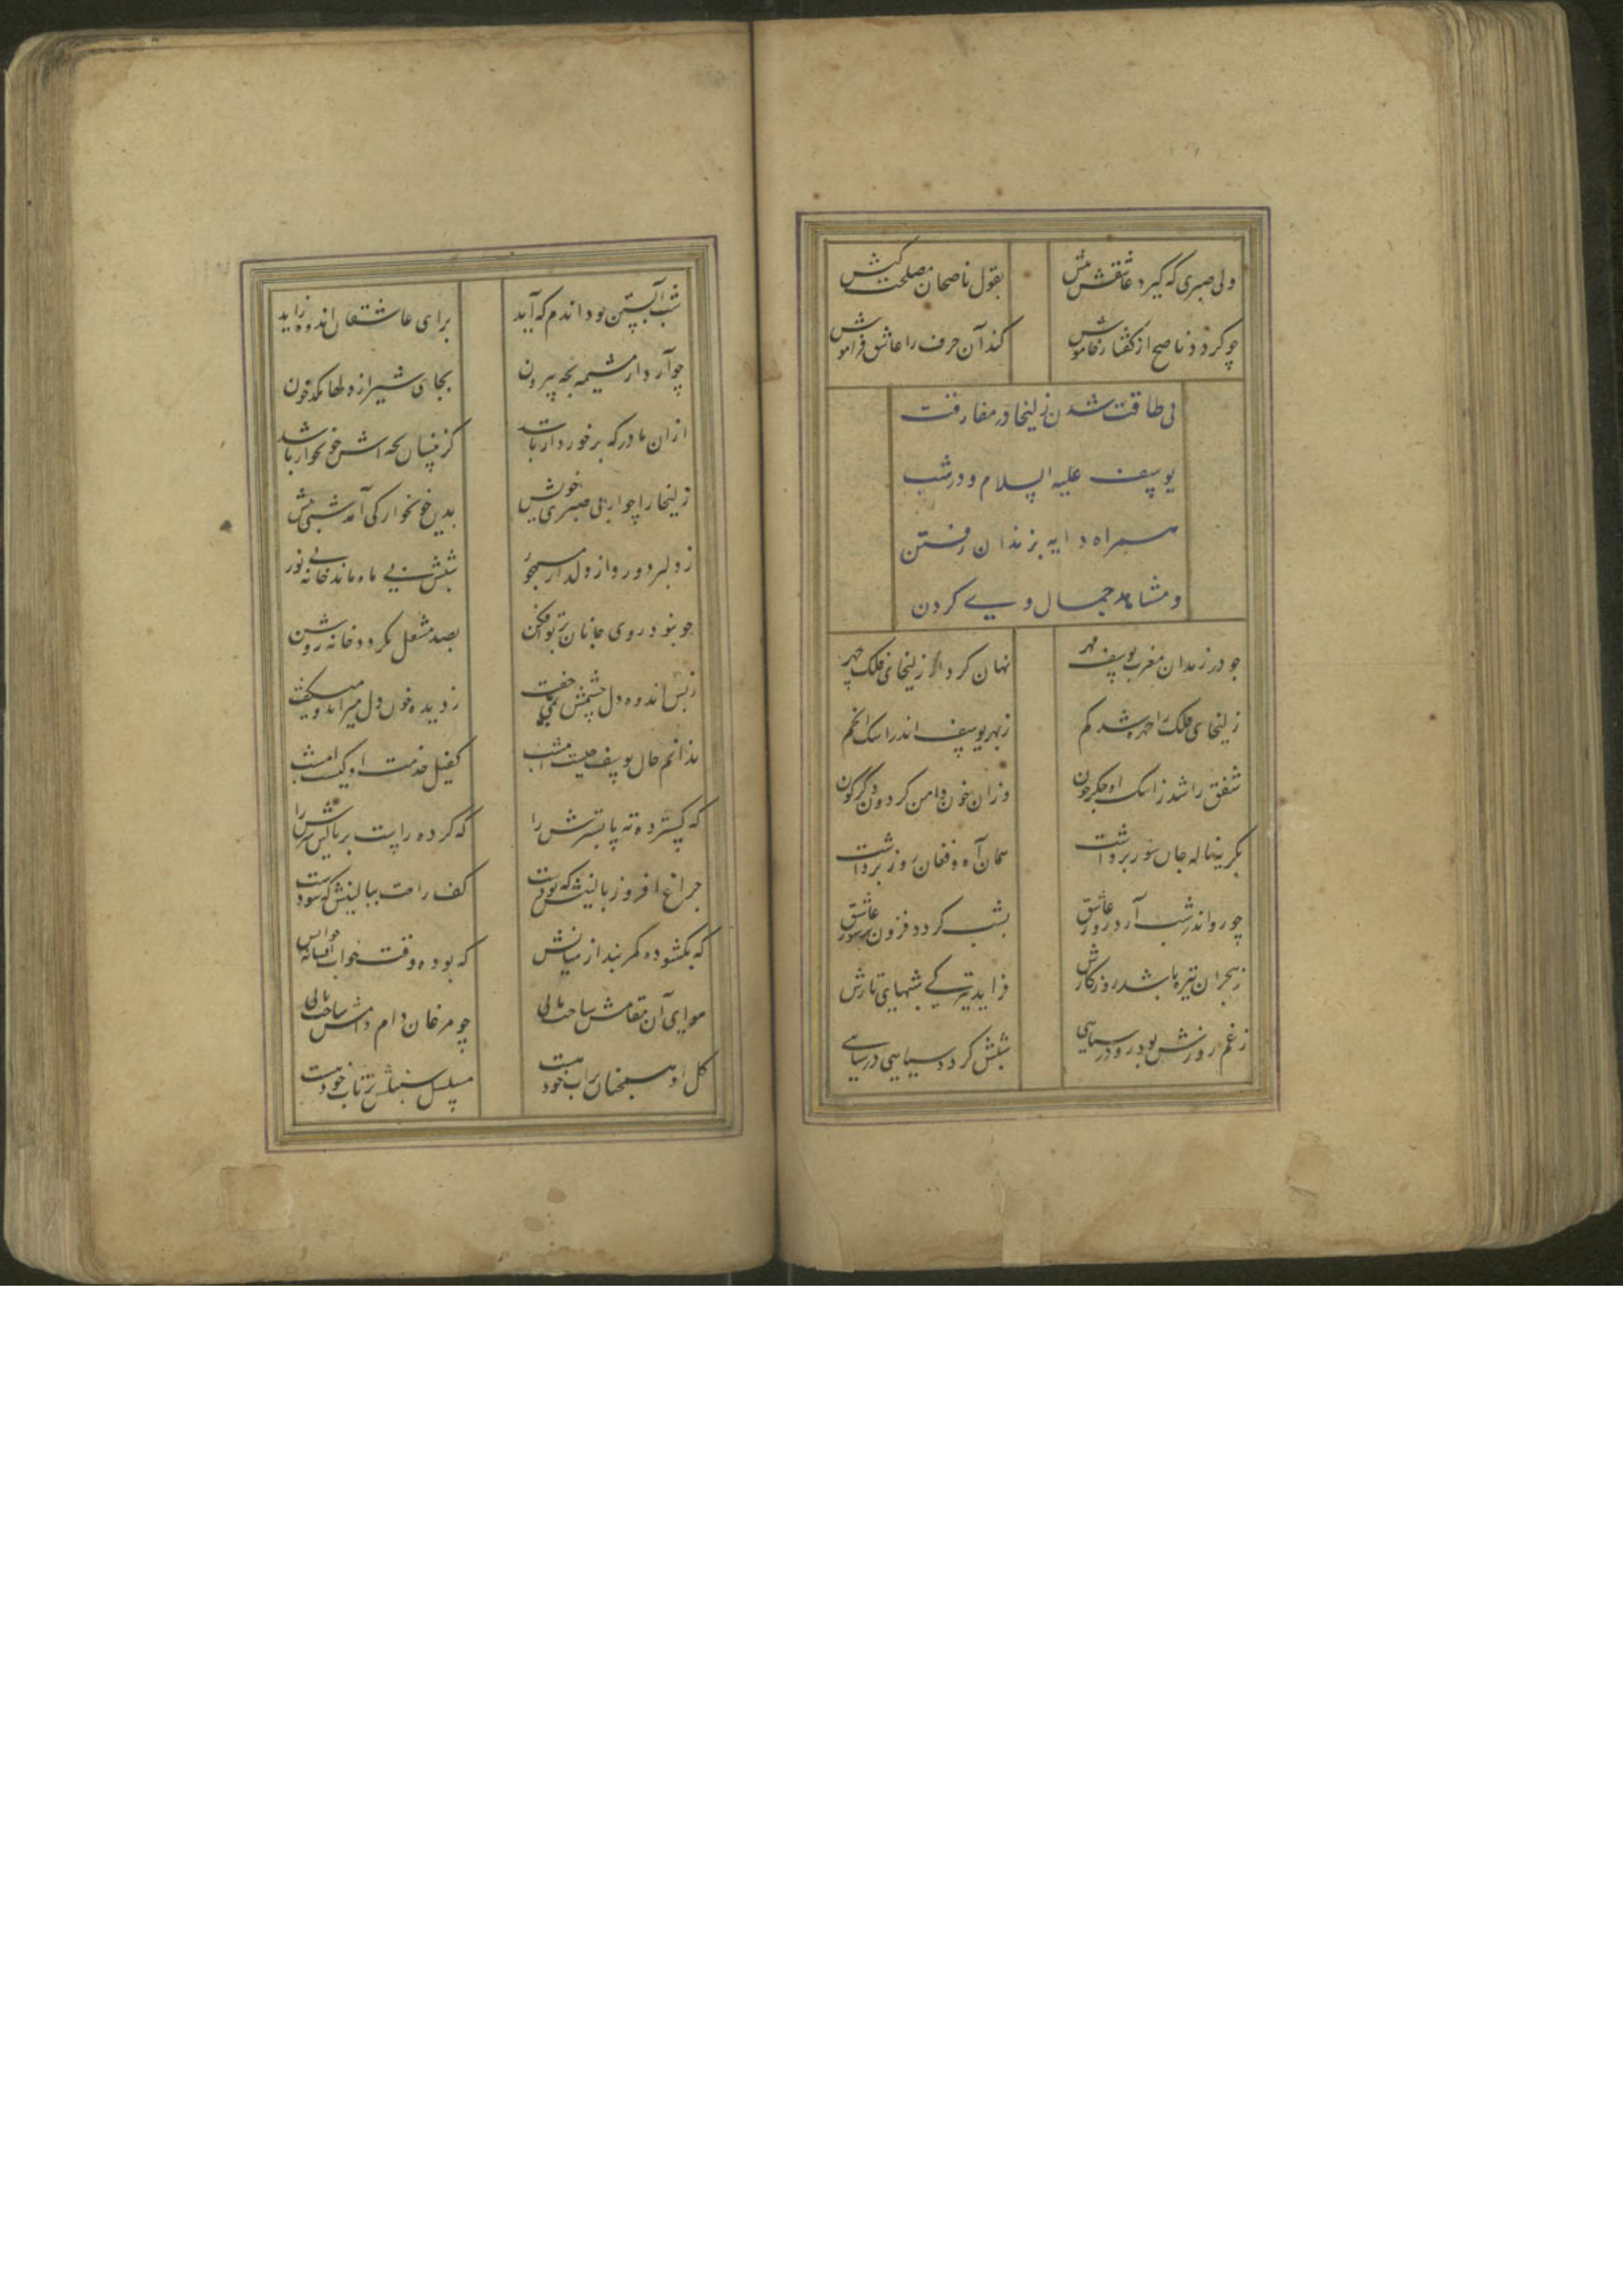 ولی صبری که گیرد عاشقش پیش بقول ناصحان مصلحت کیش
چو گردد ناصح از گفتار خاموش کند آن حرف را عاشق فراموش
بی طاقت شدن زلیخا در مفارقت
یوسف علیه السلام و در شب
همراه دایه بزندان رفتن
و مشاهده جمال وی کردن
چو در زندان مغرب یوسف مهر نهان کرد از زلیخای فلک چهر
زلیخای فلک را مهر شد گم ز مهر یوسف اندر اشک انجم
شفق را شد ز اشک او جگر خون وزان خون دامن گردون دگرگون
بگریه ناله جان سوز برداشت همان آه و فغان روز برداشت
چو رو اندر شب آرد روز عاشق بشب گردد فزون تر سوز عاشق
ز هجران تیره باشد روزگارش فزاید تیرگی شبهای تارش
ز غم روزش بود رو در سیاهی شبش گردد سیاهی در سیاهی
شب آبستن بود اندم که آید برای عاشقان اندوه زاید
چو آرد از مشیمه بچه بیرون بجای شیر از دلها مکد خون
ازان مادر که برخوردار باشد کزینسان بچه اش خونخوار باشد
زلیخا را چو از بی صبری خویش بدین خونخوارگی آمد شبی پیش
ز دلبر دور و از دلدار مهجور شبش بی ماه ماند خانه بی نور
چو نبود روی جانان پرتو افکن بصد مشعل نگردد خانه روشن
ز بس اندوه دل چشمش نمی خفت ز دیده خون دل میراند و میگفت
ندانم حال یوسف چیست امشب کفیل خدمت او کیست امشب
که گسترده ته پا بسترش را که کرده راست بر بالین سرش را
چراغ افروز بالینش که بودست کف راحت ببالینش که سودست
که بگشوده کمربند از میانش که بوده وقت خواب افسانه خوانش
هوای آن مقامش ساخت یا نی چو مرغان دام دامش ساخت یا نی
گل او همچنان بر آب خود هست مسلسل سنبلش بر تاب خود هست